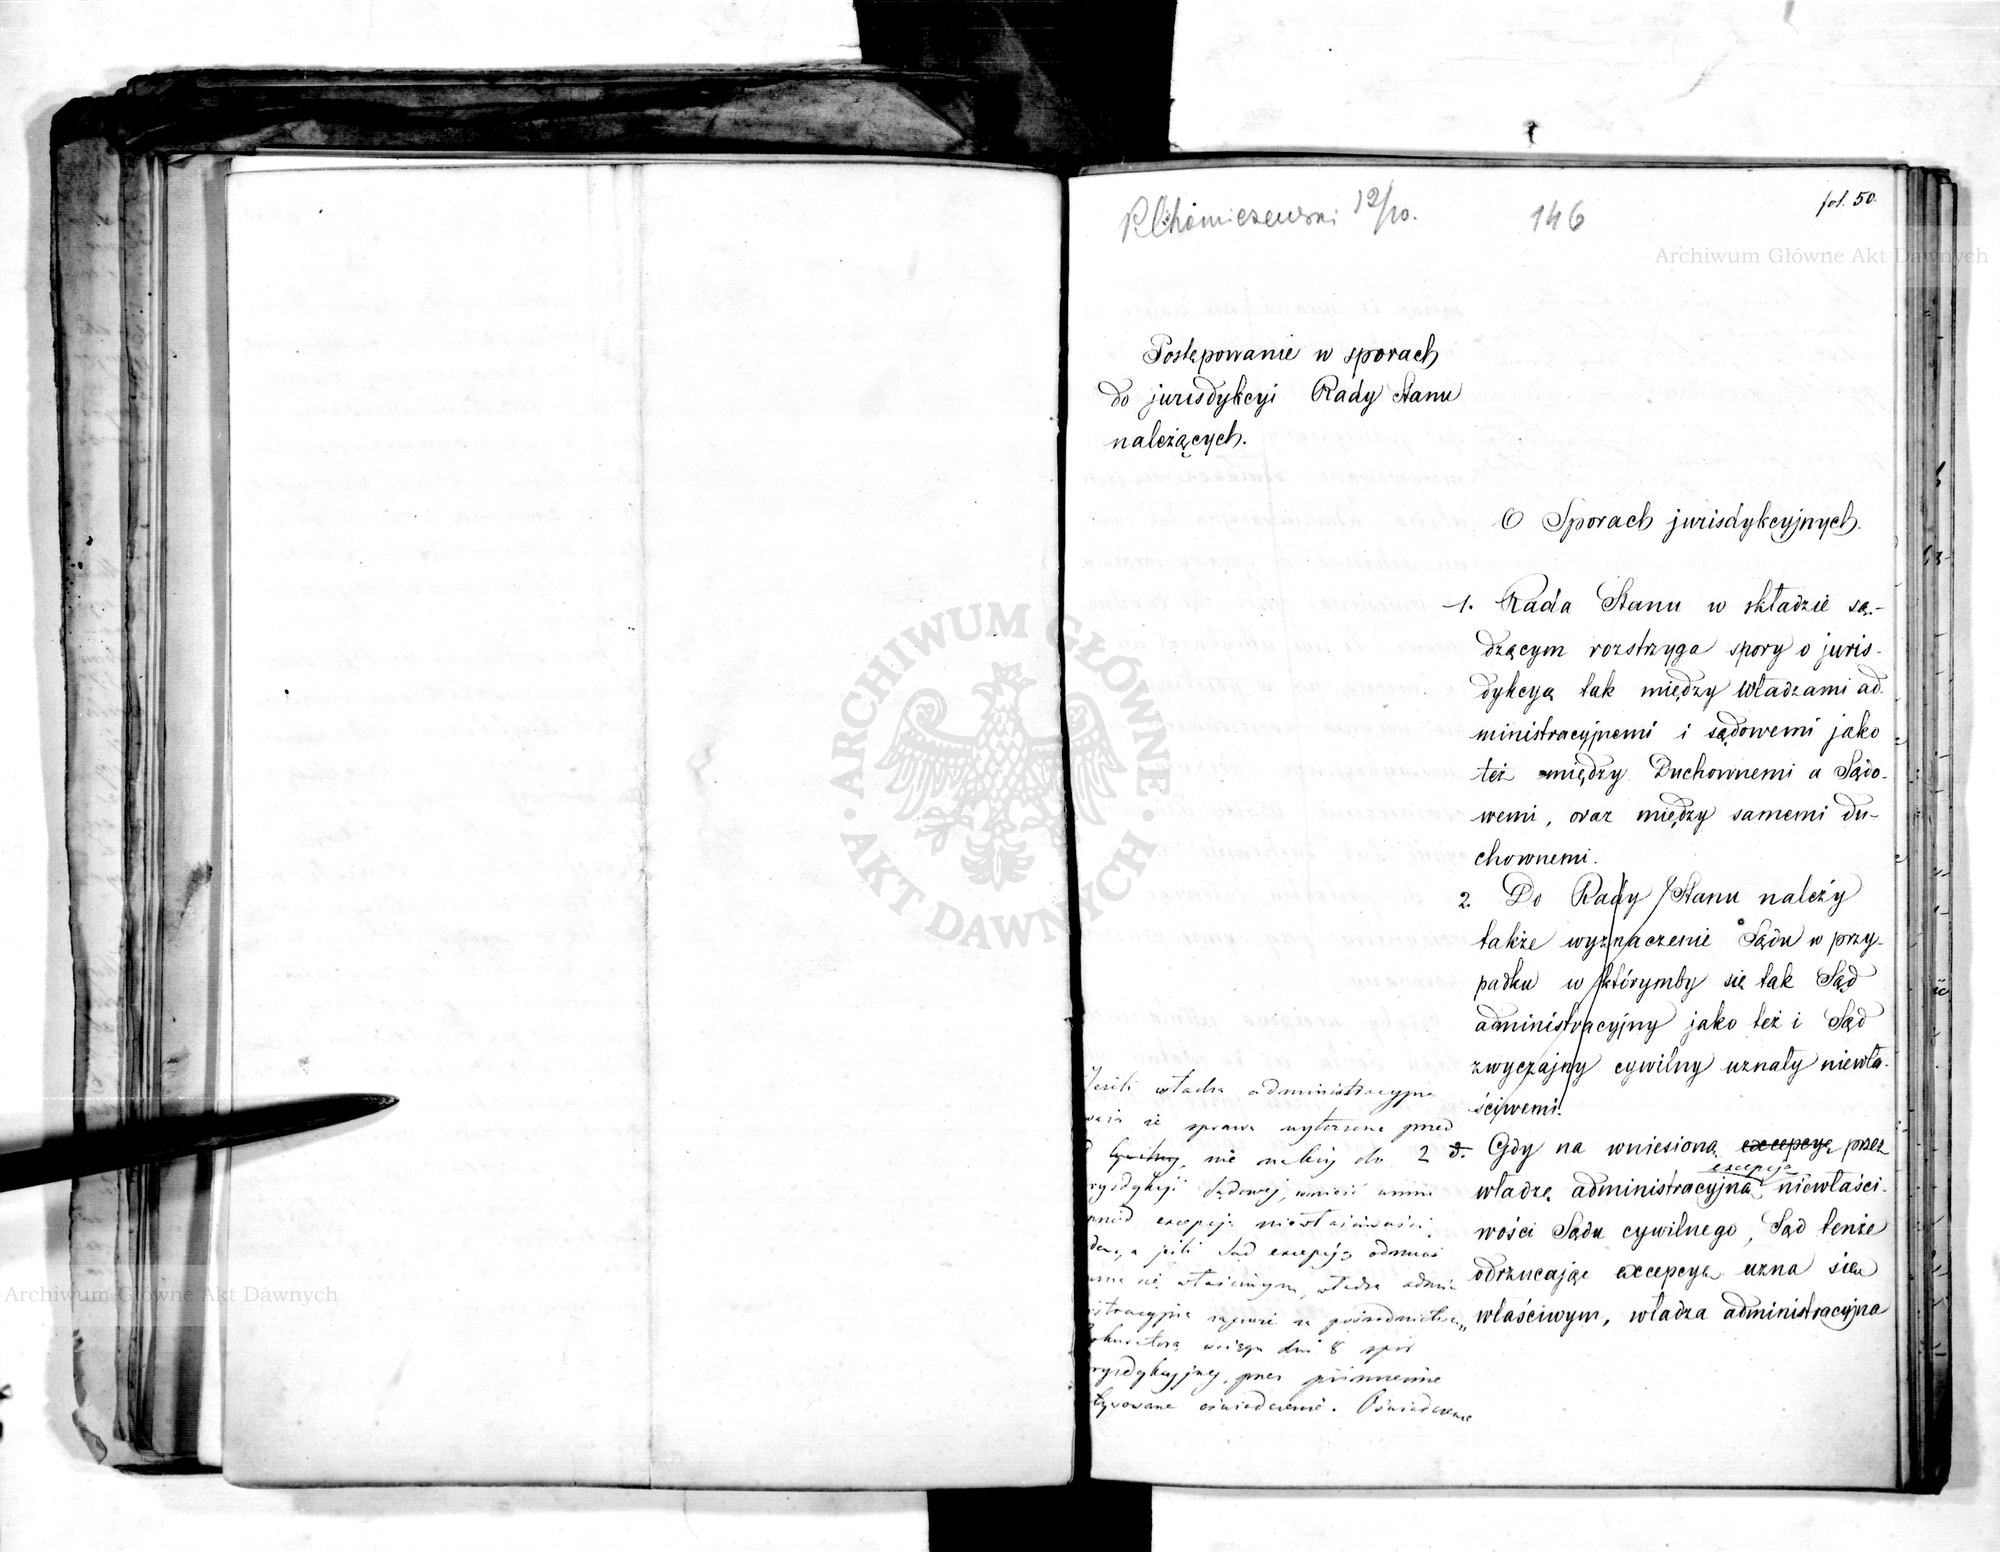 12/10.
146
fol. 50.
Archiwum Główne Akt Dawnych
Postępowanie w sporach
do jurisdykcyi Rady Stanu
należących.
O Sporach jurisdykcyjnych.
1. Rada Stanu w składzie są-
dzącym rozstrzyga spory o juris-
dykcyą tak między Władzami ad-
ministracyjnemi i sądowemi jako
też między Duchownemi a Sądo-
wemi, oraz między samemi du-
chownemi.
2. Do Rady Stanu należy
także wyznaczenie Sądu w przy-
padku w którymby się tak Sąd
administracyjny jako też i Sąd
zwyczajny cywilny uznały niewła-
ściwemi.
2 3. Gdy na wniesioną excepcyę przez
excepcją
władzę administracyjną niewłaści-
wości Sądu cywilnego, Sąd tenże
odrzucając excepcyą uzna się
właściwym, władza administracyjna
Jeśli władza administracyjna
że sprawa wytoczona przed
cywilny, nie należy do
Sądowej, wnieść winna
excepcją niewłaściwości
a jeśli Sąd excepcją odrzuci
się właściwym, władza admi-
za pośrednictwem
dni 8 spór
przez
oświadczenie. Oświadczenie
ARCHIWUM GŁÓWNE
AKT DAWNYCH
Archiwum Główne Akt Dawnych